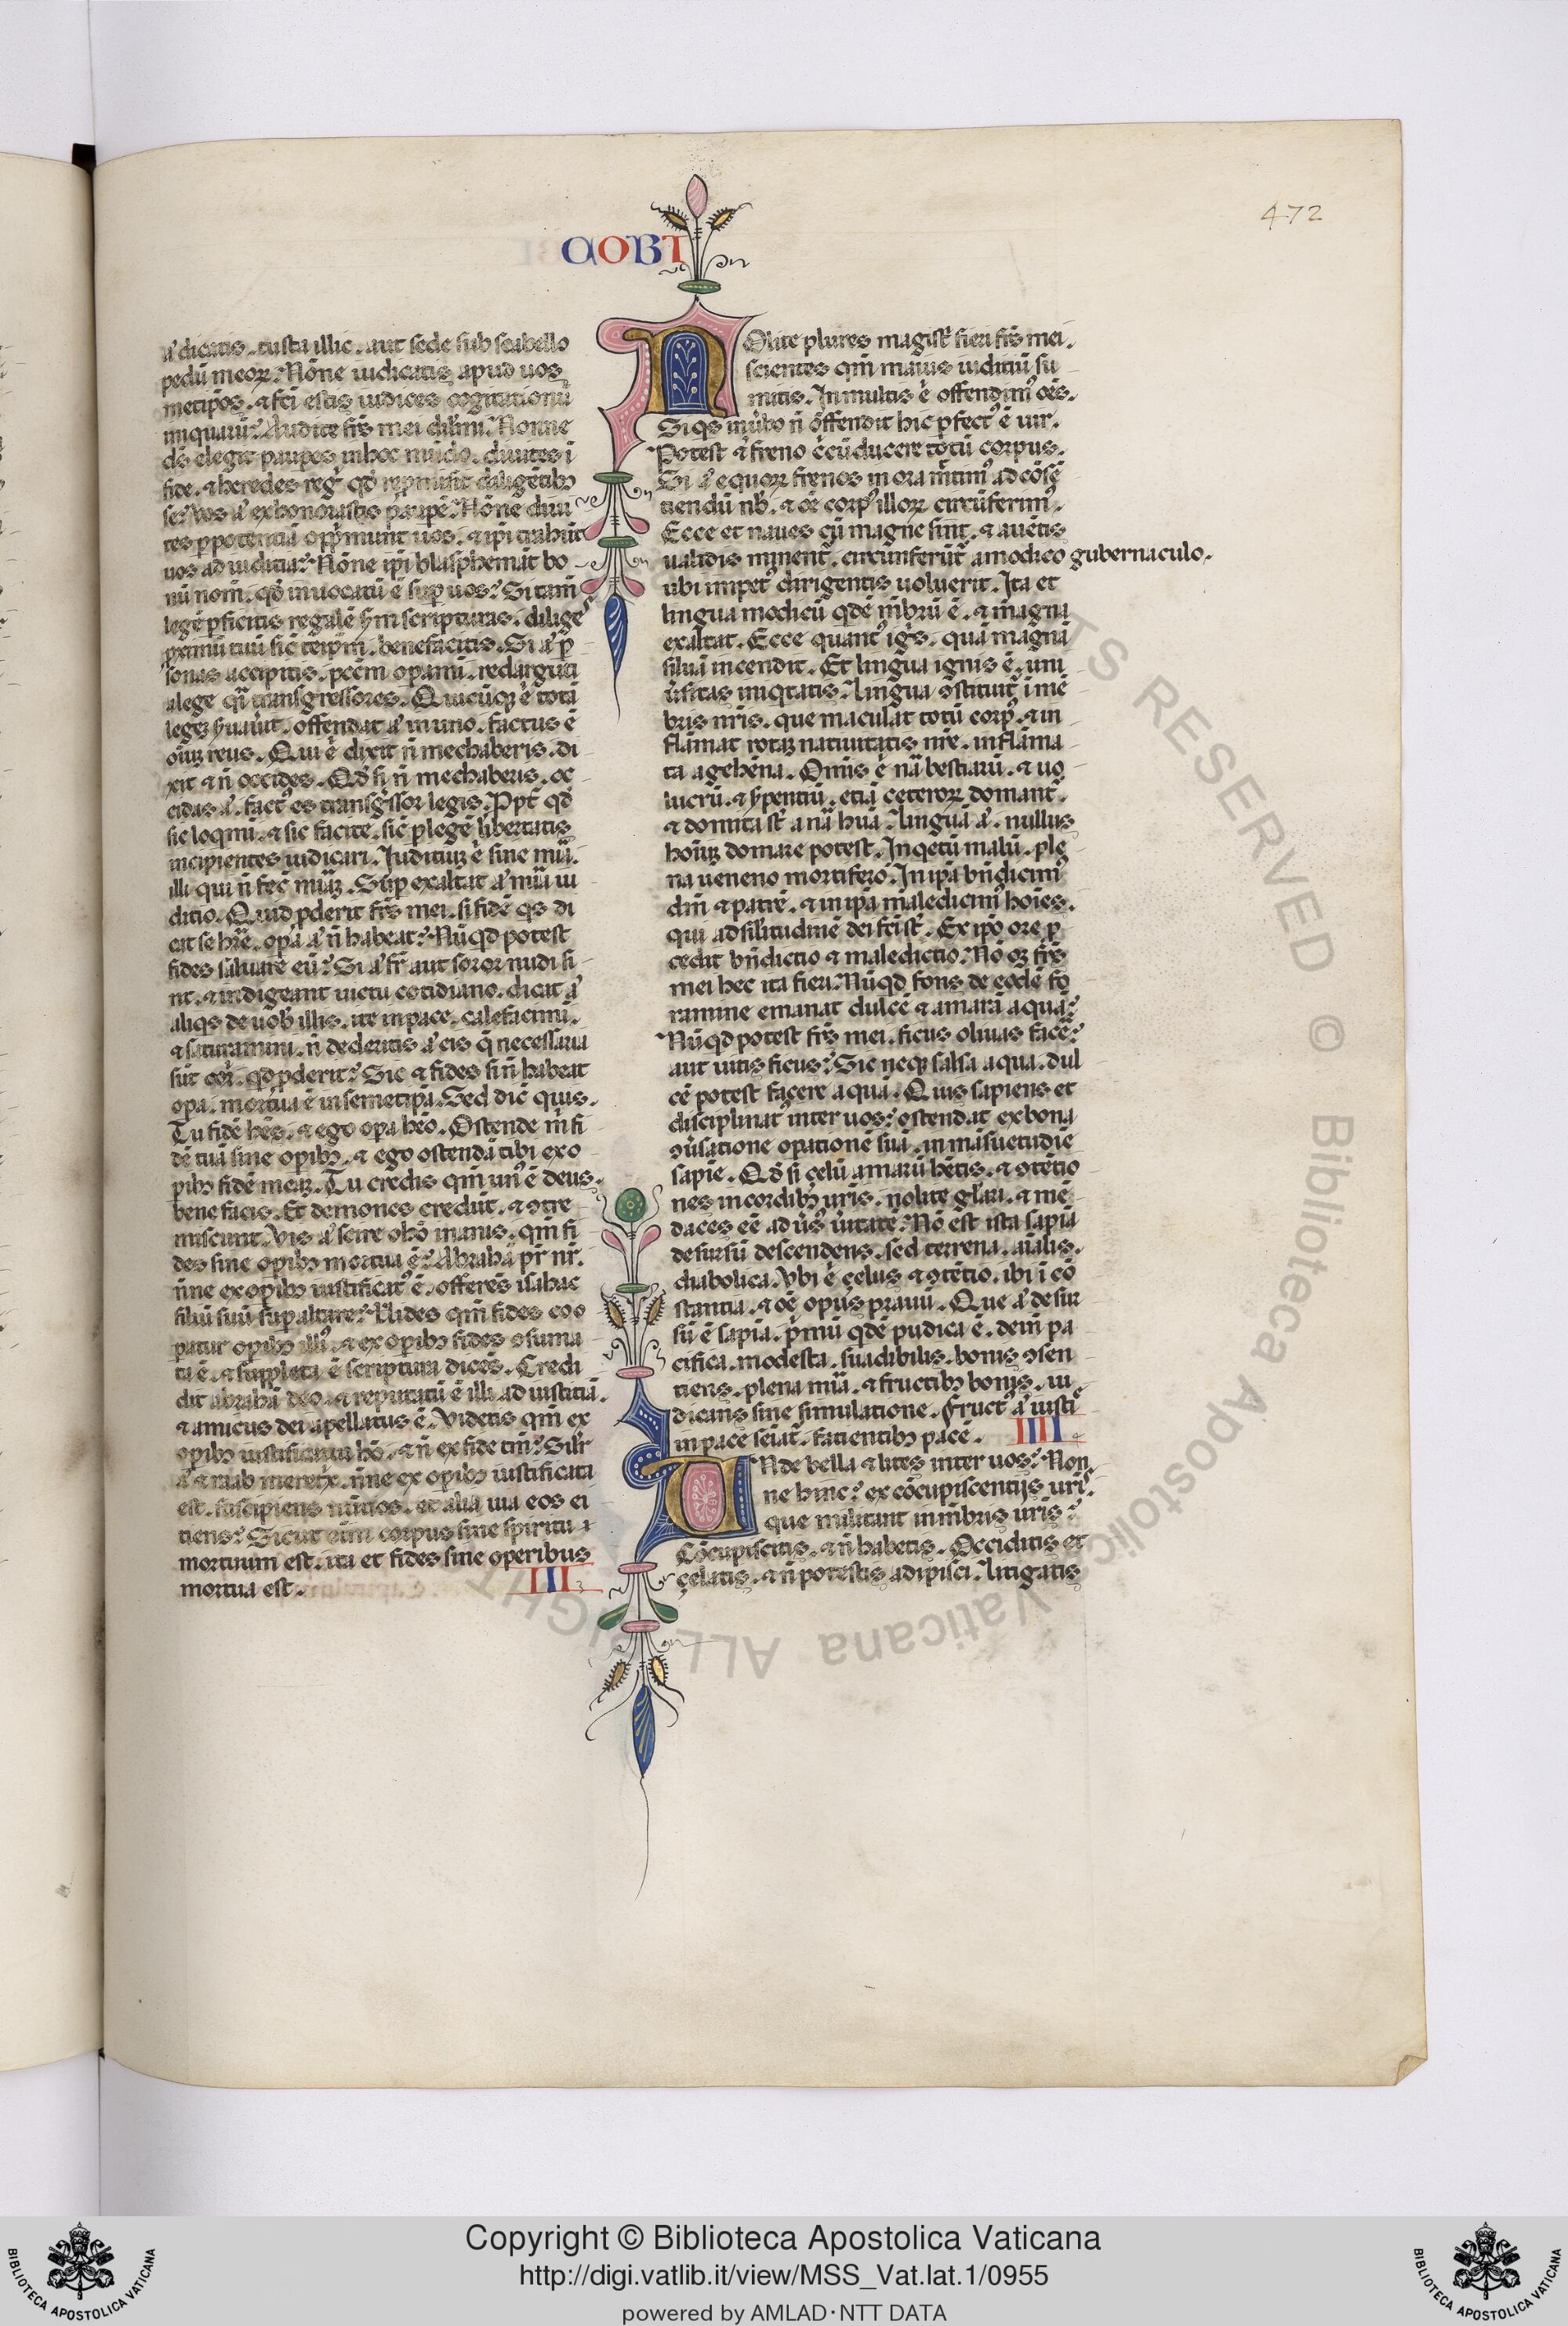 472
COBI
a᷒ dicatis. tu sta illic. aut sede sub scabello
pedū meoꝝ? Nōne iudicatis apud uos
metip̄os. ⁊ fc̄i estis iudices cogitationū
iniquaꝝ? Audite fr̄s mei dil̄mi. Nonne
ds̄ elegit paup̄es in hoc mūdo. diuites ī
fide. ⁊ heredes reg̓ qd̓ rep̄misit diligētibꝫ
se? Uos a᷒ exhonorastis paup̄ē. Nōne diui
tes p̱ potentiā opp̄munt uos. ⁊ ip̄i trahūt
uos ad iuditia? Nōne ip̄i blasphemāt bo
nū nom̄. qd̓ inuocatū ē sup̱ uos? Si tam̄
legē p̱ficitis regalē s̄m scripturas. diliges
prximū tuū sic̄ teip̄m. benefacitis. Si a᷒ p̱
sonas accipitis. pcc̄m op̱amī. redarguti
a lege q̄i transgressores. Quicūqꝫ ē totā
legeꝫ s̓uau̓it. offendat a᷒ in uno. factus ē
om̄iuꝫ reus. Qui ē dixit ñ mechaberis. di
xit ⁊ ñ occides. Qd̓ si ñ mechaberis. oc
cidas a᷒. fact᷒ es transg̓ssor legis. Ppt̓ qd̓
sic loqmī. ⁊ sic facite. sic̄ p̱ legē libertatis
incipientes iudicari. Iuditiuꝫ ē sine mīa.
illi qui ñ fec̄ mīaꝫ. Sup̱ exaltat a᷒ mīa iu
ditio. Quid p̱derit fr̄s mei. si fidē qs di
cat se hr̄e. op̱a a᷒ ñ habeat? Nūqd potest
fides saluare eū? Si a᷒ fr̄ aut soror nudi si
nt. ⁊ indigeant uictu cotidiano. dicat a᷒
aliqs de uob̓ illis. ite in pace. calefacimī.
⁊ saturamini. ñ dederitis a᷒ eis q̄ necessaria
sūt cor̄. qd p̱derit? Sic ⁊ fides si ñ habeat
op̱a. mortua ē in semetip̄a. Sed dic̄ quis.
Tu fidē hēs. ⁊ ego op̱a hēo. Ostende m̓ fi
dē tuā sine op̱ibꝫ. ⁊ ego ostendā tibi ex o
p̱ibꝫ fidē meaꝫ. Tu credis qm̄ un᷒ ē deus.
bene facis. Et demones credūt. ⁊ ꝯtre
miscunt. Vis a᷒ scire o hō inanis. qm̄ fi
des sine op̱ibꝫ mortua ē? Abrahā pr̄ nr̄.
n̄ne ex op̱ibꝫ iustificat᷒ ē. offerēs isahac
filiū suū sup̱ altare? Uides qm̄ fides coo
p̱atur op̱ibꝫ illi᷒. ⁊ ex op̱ibꝫ fides ꝯsuma
ta ē. ⁊ suppleta ē scriptura dicēs. Credi
dit abrahā deo. ⁊ reputatū ē illi ad iustitiā.
⁊ amicus dei apellatus ē. Videtis qm̄ ex
op̱ibꝫ iustificatur hō. ⁊ ñ ex fide tm̄? Sil̓r
a᷒ ⁊ raab meret̓x. n̄ne ex op̱ibꝫ iustificata
est. suscipiens nūtios. et alia uia eos ei
tiens? Sicut eim̄ corpus sine spiritu
mortuum est. ita et fides sine operibus
mortua est. III
Nolite plures magist̓ fieri fr̄s mei.
scientes qm̄ maius iuditiū su
mitis. In multis ē offendim᷒ oēs.
Si qs in u̓bo ñ offendit hic p̱fect᷒ ē uir.
Potest ⁊ freno cc̄ūducere totū corpus.
Si a᷒ equoꝝ frenos in ora mittim᷒ ad cōsē
tiendū nb̓. ⁊ oē corp᷒ illoꝝ circūferim᷒.
Ecce et naues cū magne sint. ⁊ a uētis
ualidis minent̄. circunferūt̄ a modico gubernaculo.
ubi impet᷒ dirigentis uoluerit. Ita et
lingua modicū qdē m̄brū ē. ⁊ magna
exaltat. Ecce quant᷒ igīs. quā magnā
siluā incendit. Et lingua ignis ē. uni
u̓sitas iniqtatis. Lingua ꝯstituit̄ ī mē
bris nr̄is. que maculat totū corp᷒. ⁊ in
flāmat rotaꝫ natiuitatis nr̄e. inflāma
ta a gehēna. Omīs ē nā bestiaꝝ. ⁊ uo
lucrū. ⁊ s̓pentiū. etiā ceteroꝝ domant̄.
⁊ domita st̄ a nā huā. Linguā a᷒. nullus
hoīuꝫ domare potest. Inqetū malū. ple
na ueneno mortifero. In ip̄a bn̄dicim᷒
dm̄ ⁊ patrē. ⁊ in ip̄a maledicim᷒ hoīes.
qui ad sil̓itudinē dei fc̄i st̄. Ex ip̄o ore p̱
cedit bn̄dictio ⁊ maledictio. Nō oꝫ fr̄s
mei hec ita fieri. Nūqd fons de eodē fo
ramine emanat dulcē ⁊ amarā aquā?
Nūqd potest fr̄s mei. ficus oliuas facē?
aut uitis ficus? Sic neqꝫ salsa aqua. dul
cē potest facere aquā. Quis sapiens et
disciplinat᷒ inter uos? ostendat ex bona
ꝯu̓satione op̱ationē suā. in māsuetudīe
sapīe. Qd̓ si çelū amarū hētis. ⁊ ꝯtētio
nes in cordibꝫ ur̄is. nolite gl̓ari. ⁊ mē
daces eē adu̓s᷒ u̓itatē. Nō est ista sapīa
desursū descendens. sed terrena. aīalis.
diabolica. Vbi ē çelus ⁊ ꝯtētio. ibi ī cō
stantia. ⁊ oē opus prauū. Que a᷒ desur
sū ē sapīa. p̓mū qdē pudica ē. dein̄ pa
cifica. modesta. suadibilis. bonis ꝯsen
tiens. plena mīa. ⁊ fructibꝫ bonis. iu
dicans sine simulatione. Fruct᷒ a᷒ iusti
in pace seīat̄. facientibꝫ pacē. IIII
VNde bella ⁊ lites inter uos? Non
ne hinc? ex cōcupiscentijs uris.
que militant in m̄bris uris?
Cōcupiscitis. ⁊ ñ habetis. Occiditis et
çelatis. ⁊ ñ potestis adipisci. Litigatis
ALL RIGHTS RESERVED © Biblioteca Apostolica Vaticana
Copyright © Biblioteca Apostolica Vaticana
http://digi.vatlib.it/view/MSS_Vat.lat.1/0955
powered by AMLAD·NTT DATA
BIBLIOTECA APOSTOLICA VATICANA
BIBLIOTECA APOSTOLICA VATICANA